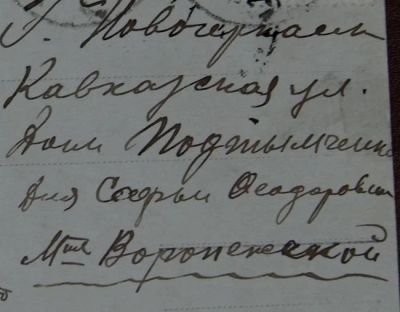 Г. Новочеркасск
Кавказская ул.
Дом Подтымченко
Для Софьи Феодоровны
М<sup>me</sup> Воронежской